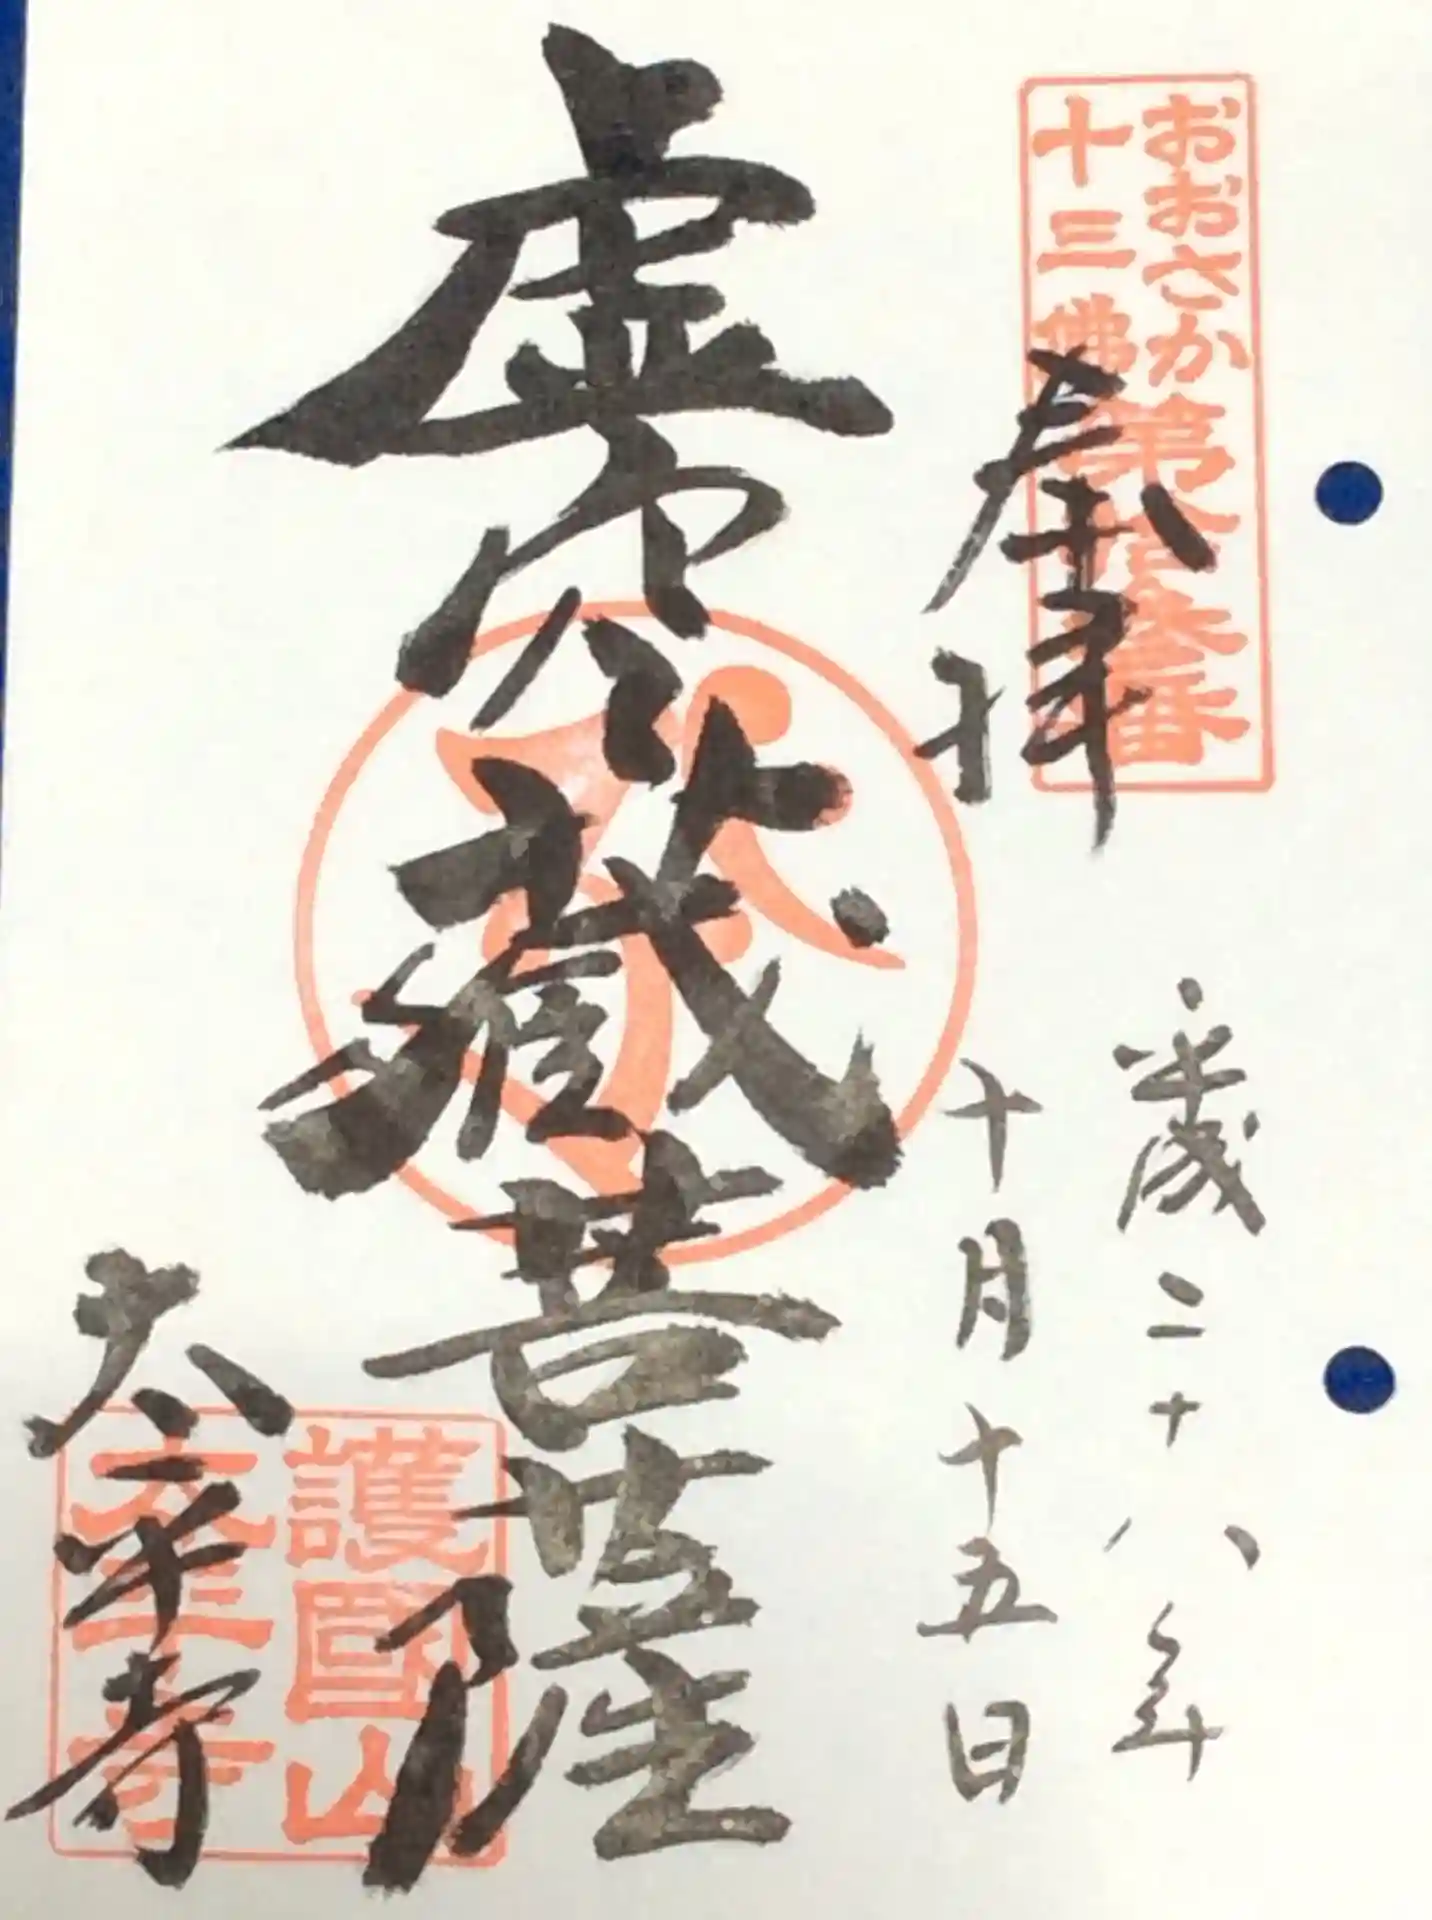 おおさか
十三佛
第拾参番
奉拝
平成二十八年
十月十五日
虚空蔵菩薩
護國山
太平寺
太平寺